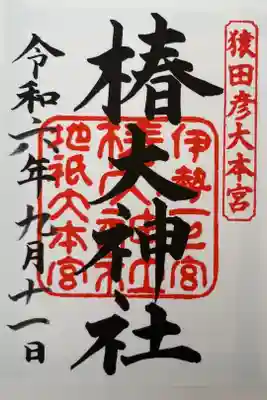 猿田彦大本宮
椿大神社
伊勢一之宮
椿大神社
地祇大本宮
令和六年九月十一日